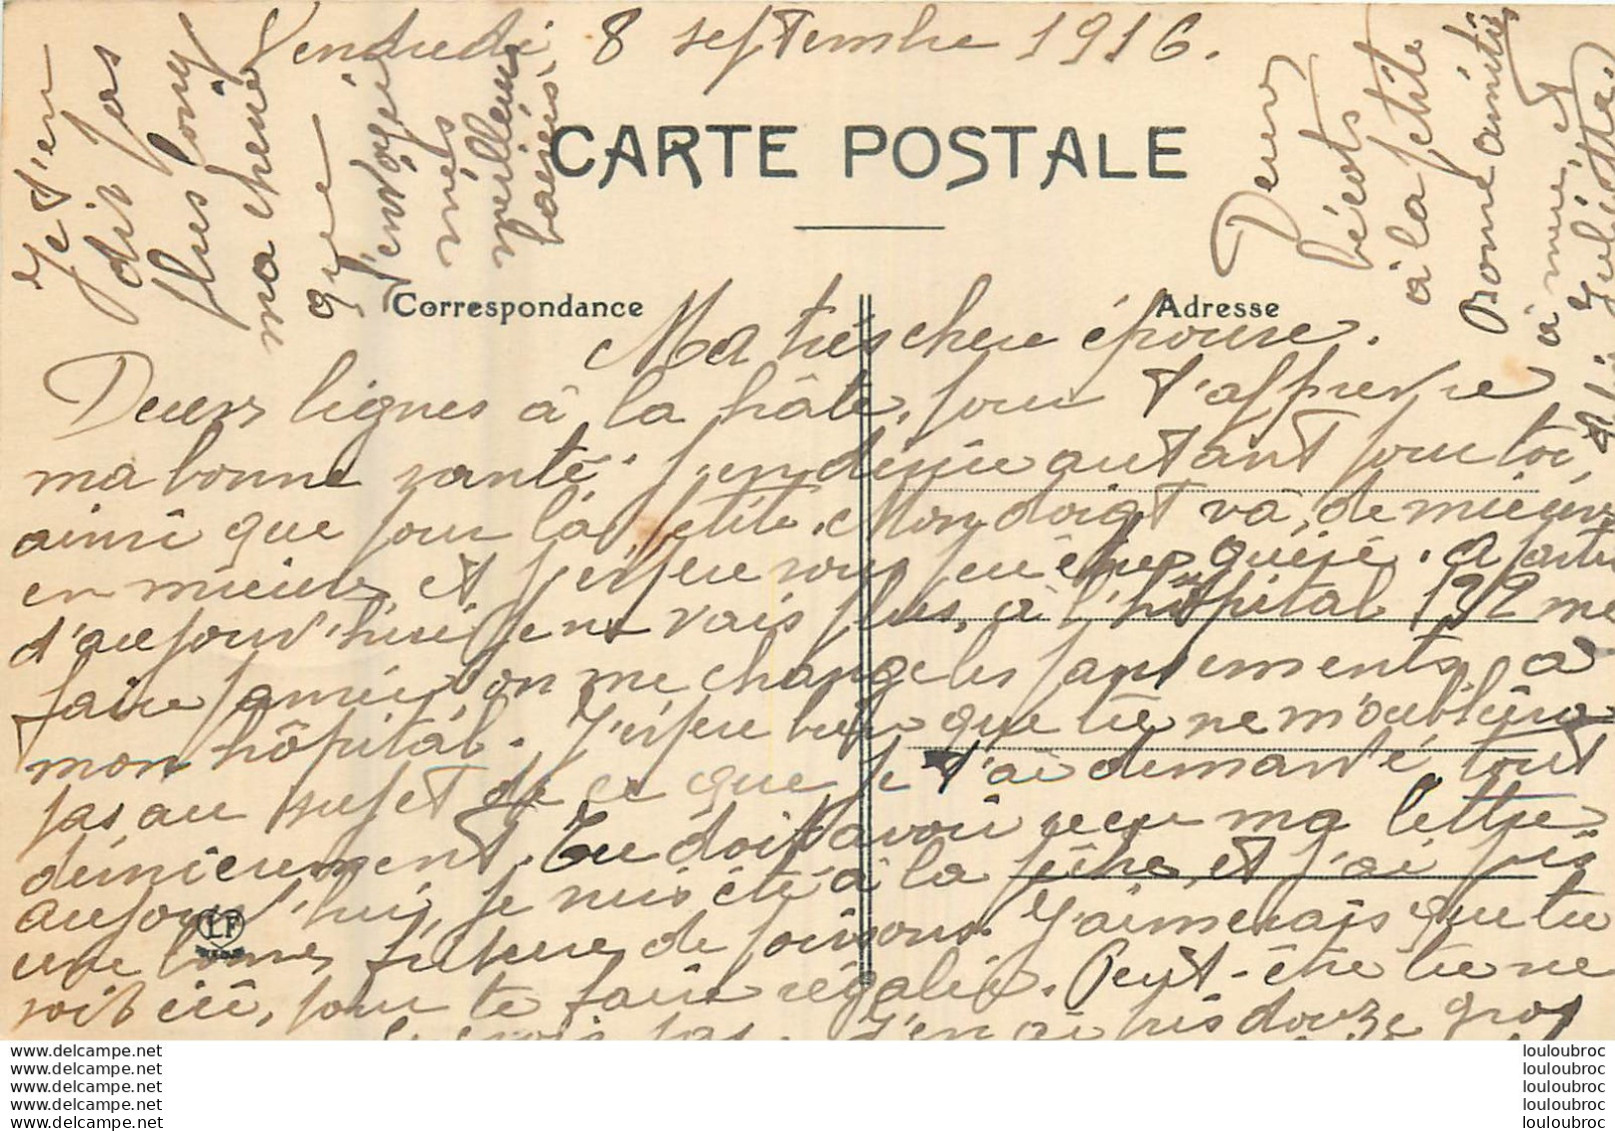 Vendredi 8 septembre 1916.
CARTE POSTALE
Correspondance
Adresse
Ma très chère épouse.
Deux lignes à la hâte, pour t'apprendre
ma bonne santé. J'en désire autant pour toi,
ainsi que pour la petite. Mon doigt va de mieux
en mieux et j'espère sous peu être guéri. A partir
d'aujourd'hui je ne vais plus à l'hôpital 132 me
faire panser, on me change les pansements, à
mon hôpital. J'espère bien que tu ne m'oubliera
pas au sujet de ce que je t'ai demandé tout
dernièrement. Tu doit avoir reçu ma lettre
aujourd'hui, je suis été à la pêche, et j'ai pris
une bonne friture de poissons. J'aimerais que tu
soit ici, pour te faire régaler. Peut-être tu ne
crois pas. J'en ai pris douze gros
LF
Je t'en
dit pas
plus long
ma chérie
que
t'envoyer
mes
meilleurs
baisers
Deux
bécots
à la petite
Bonne amitiés
à mimi, et
Juliette
www.delcampe.net
www.delcampe.net
www.delcampe.net
www.delcampe.net
www.delcampe.net
louloubroc
louloubroc
louloubroc
louloubroc
louloubroc